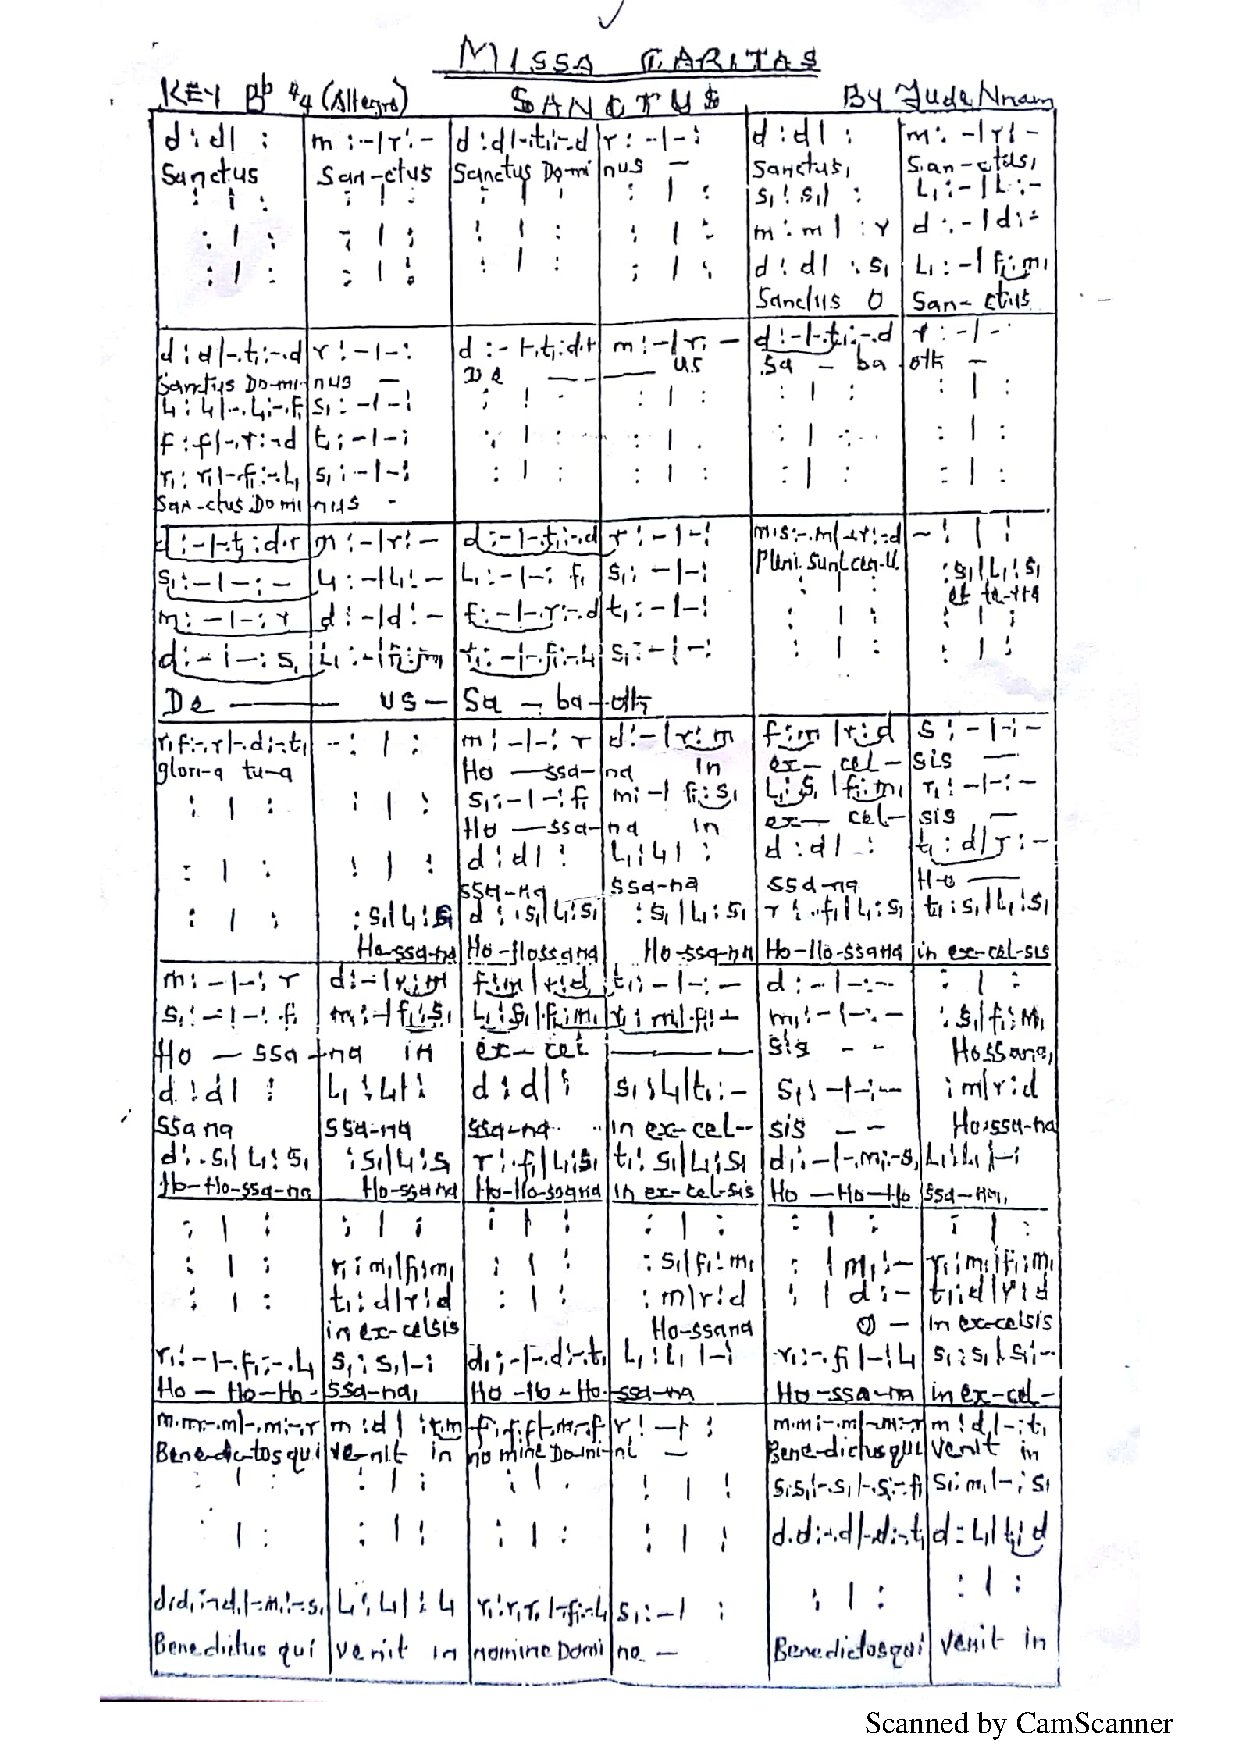 MISSA CARITAS
KEY Bb 4/4 (Allegro) SANCTUS By Jude Nnam
d : d | : m : - | r : - d : d | -. t₁ : -. d r : - | - : d : d | : m : - | r : -
Sanctus San-ctus Sanctus Do-mi nus — Sanctus, San-ctus,
: | : : | : : | : : | : s₁ : s₁ | : l₁ : - | l₁ : -
: | : : | : : | : : | : m : m | : r d : - | d : -
: | : : | : : | : : | : d : d | : s₁ l₁ : - | f₁ : m₁
Sanctus O San-ctus
d : d | -. t₁ : -. d r : - | - : d : - | -. t₁ : d. r m : - | r : - d : - | -. t₁ : -. d r : - | - :
Sanctus Do-mi-nus — De — us Sa — ba-oth —
l₁ : l₁ | -. l₁ : -. f₁ s₁ : - | - : : | : : | : : | : : | :
f : f | -. r : -. d t₁ : - | - : : | : : | : : | : : | :
r₁ : r₁ | -. f₁ : -. l₁ s₁ : - | - : : | : : | : : | : : | :
San-ctus Domi nus -
d : - | -. t₁ : d. r m : - | r : - d : - | -. t₁ : -. d r : - | - : m. s : -. m | -. r : -. d - : | :
Pleni sunt cœ-li
s₁ : - | - : - l₁ : - | l₁ : - l₁ : - | - : f₁ s₁ : - | - : : | : : s₁ | l₁ : s₁
et te-rra
m : - | - : r d : - | d : - f : - | -. r : -. d t₁ : - | - : : | : : | :
d : - | - : s₁ l₁ : - | f₁ : m₁ r₁ : - | -. f₁ : -. l₁ s₁ : - | - : : | : : | :
De — us — Sa — ba — oth
r. f : -. r | -. d : -. t₁ - : | : m : - | - : r d : - | r : m f : m | r : d s : - | - : -
glori-a tu-a Ho — ssa-na in ex-cel-sis —
: | : : | : s₁ : - | - : f₁ m₁ : - | f₁ : s₁ l₁ : s₁ | f₁ : m₁ r₁ : - | - : -
Ho — ssa-na in ex-cel-sis —
: | : : | : d : d | : l₁ : l₁ | : d : d | : t₁ : d | r : -
ssa-na ssa-na ssa-na Ho —
: | : : s₁ | l₁ : s₁ d : . s₁ | l₁ : s₁ : s₁ | l₁ : s₁ r : . f₁ | l₁ : s₁ t₁ : s₁ | l₁ : s₁
Ho-ssa-na Ho-Hossana Ho-ssa-na Ho-Ho-ssana in ex-cel-sis
m : - | - : r d : - | r : m f : m | r : d t₁ : - | - : - d : - | - : - : | :
s₁ : - | - : f₁ m₁ : - | f₁ : s₁ l₁ : s₁ | f₁ : m₁ r₁ : m₁ | f₁ : - m₁ : - | - : - : s₁ | f₁ : m₁
Ho — ssa-na in ex-cel — sis - - Hossana,
d : d | : l₁ : l₁ | : d : d | : s₁ : l₁ | t₁ : - s₁ : - | - : - : m | r : d
ssa na ssa-na ssa-na in ex-cel-sis — — Ho-ssa-na
d : . s₁ | l₁ : s₁ : s₁ | l₁ : s₁ r : . f₁ | l₁ : s₁ t₁ : s₁ | l₁ : s₁ d₁ : - | -. m₁ : -. s₁ l₁ : l₁ | - :
Ho-Ho-ssa-na Ho-ssana Ho-Ho-ssana in ex-cel-sis Ho-Ho-Ho ssa-na,
: | : : | : : | : : | : : | : : | :
: | : r₁ : m₁ | f₁ : m₁ : | : : s₁ | f₁ : m₁ : | m₁ : - r₁ : m₁ | f₁ : m₁
: | : t₁ : d | r : d : | : : m | r : d : | d : - t₁ : d | r : d
in ex-celsis Ho-ssana O — in ex-celsis
r₁ : - | -. f₁ : -. l₁ s₁ : s₁ | - : d₁ : - | -. d : -. t₁ l₁ : l₁ | - : r₁ : -. f₁ | - : l₁ s₁ : s₁ | s₁ : -
Ho — Ho-Ho-ssa-na, Ho-Ho-Ho-ssa-na Ho-ssa-na in ex-cel-
m. m : -. m | -. m : -. r m : d | : r. m f. f : f | -. m : -. f r : - | : m. m : -. m | -. m : -. r m : d | - : t₁
Bene-dictos qui ve-nit in nomine Domi-ni — Bene-dictus qui venit in
: | : : | : : | : : | : s₁. s₁ : -. s₁ | -. s₁ : -. f₁ s₁ : m₁ | - : s₁
: | : : | : : | : : | : d. d : -. d | -. d : -. t₁ d : l₁ | t₁ : d
: | : : | :
d₁. d₁ : -. d₁ | -. m₁ : -. s₁ l₁ : l₁ | : l₁ r₁ : r₁. r₁ | -. f₁ : -. l₁ s₁ : - | :
Benedictus qui venit in nomine Domi no — Benedictos qui venit in
Scanned by CamScanner